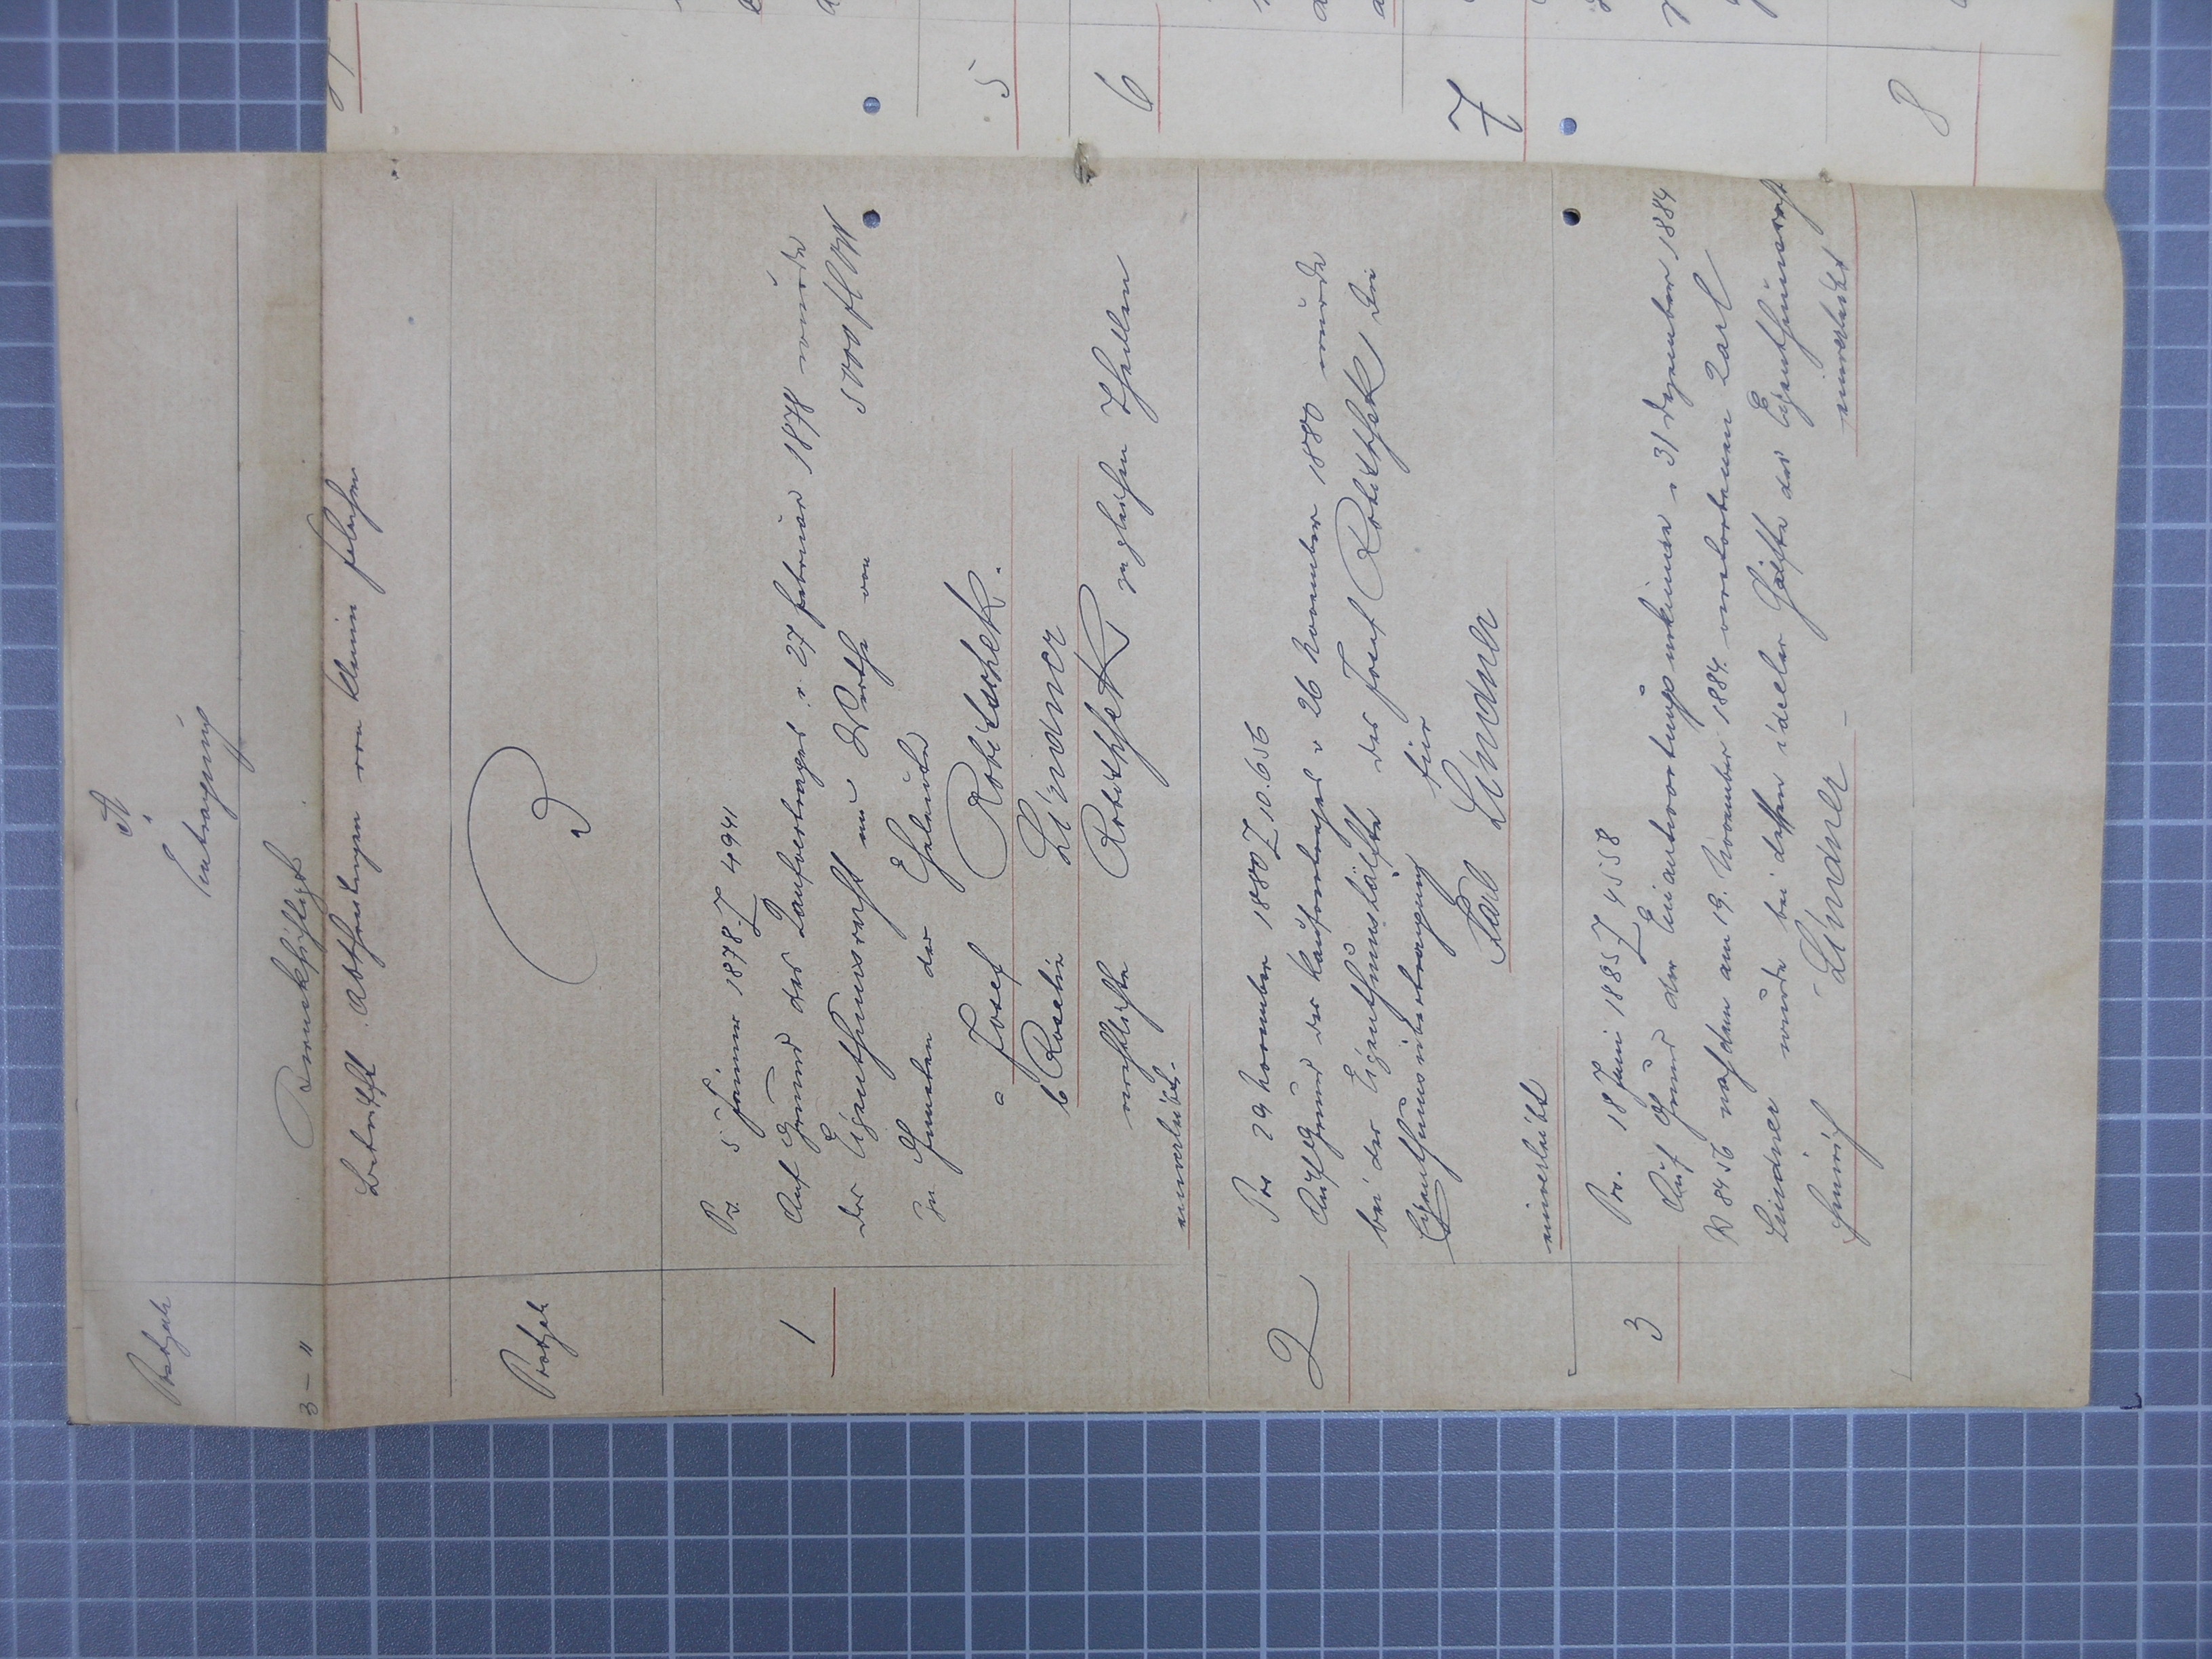 Postzahl
A.
Eintragung
3 - 11
Betrifft Abtheilungen von kleinen Flächen
Postzahl
B
1
Pr. 5 Jänner 1878 Z 4941
Auf Grund des Kaufvertrages v. 27 Februar 1878 wurde
das Eigenthumsrecht im Werthe von 5000 fl ÖW
zu Gunsten der Eheleute
a Josef Robitschek.
b Rosalia Lindner
verehelichte Robitschek zu gleichen Theilen
einverleibt.
2
Prs 29 November 1880 Z 10.656
Auf Grund des Kaufvertrages v 26 November 1880 wurde
bei der Eigenthumshälfte des Josef Robitschek die
Eigenthumsübertragung für
Karl Lindner
einverleibt
3
Pr. 18 Juni 1885 Z 4558
Auf Grund der Einantwortungsurkunde v 31 Dezember 1884
Z 8456 nach dem am 19. November 1884 verstorbenen Karl
Lindner wurde bei dessen ideeler Hälfte das Eigenthumsrecht
Heinrich Lindner einverleibt
5
6
7
8